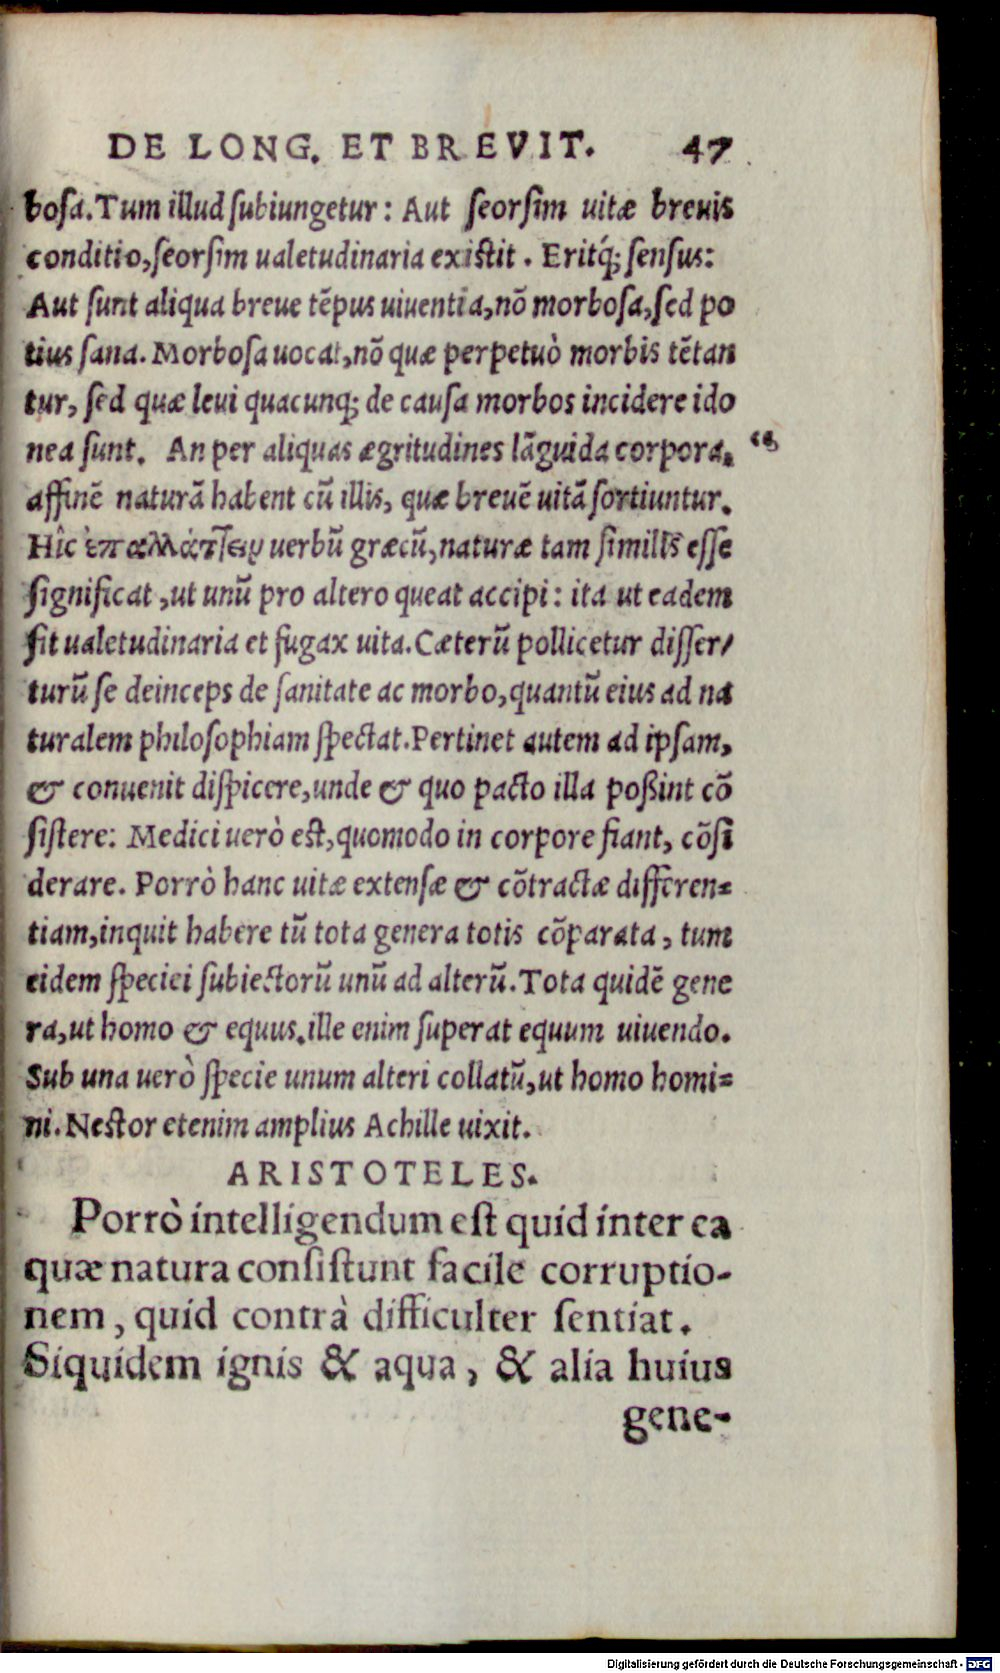 DE LONG. ET BREVIT. 47
bosa. Tum illud subiungetur: Aut seorsim uitæ breuis
conditio, seorsim ualetudinaria existit. Eritq́; sensus:
Aut sunt aliqua breue tẽpus uiuentia, nõ morbosa, sed po
tius sana. Morbosa uocat, nõ quæ perpetuò morbis tẽtan
tur, sed quæ leui quacunq; de causa morbos incidere ido
nea sunt. An per aliquas ægritudines lãguida corpora,
affinẽ naturã habent cũ illis, quæ breuẽ uitã sortiuntur.
Hîc ἐπαλλάτ]ειν uerbũ græcũ, naturæ tam similis esse
significat, ut unũ pro altero queat accipi: ita ut eadem
sit ualetudinaria et fugax uita. Cæterũ pollicetur disser/
turũ se deinceps de sanitate ac morbo, quantũ eius ad na
turalem philosophiam spectat. Pertinet autem ad ipsam,
& conuenit dispicere, unde & quo pacto illa poßint cõ
sistere: Medici uerò est, quomodo in corpore fiant, cõsi
derare. Porrò hanc uitæ extensæ & cõtractæ differen=
tiam, inquit habere tũ tota genera totis cõparata, tum
eidem speciei subiectorũ unũ ad alterũ. Tota quidẽ gene
ra, ut homo & equus. ille enim superat equum uiuendo.
Sub una uerò specie unum alteri collatũ, ut homo homi=
ni. Nestor etenim amplius Achille uixit.
ARISTOTELES.
Porrò intelligendum est quid inter ea
quæ natura consistunt facile corruptio-
nem, quid contrà difficulter sentiat.
Siquidem ignis & aqua, & alia huius
gene-
Digitalisierung gefördert durch die Deutsche Forschungsgemeinschaft - DFG